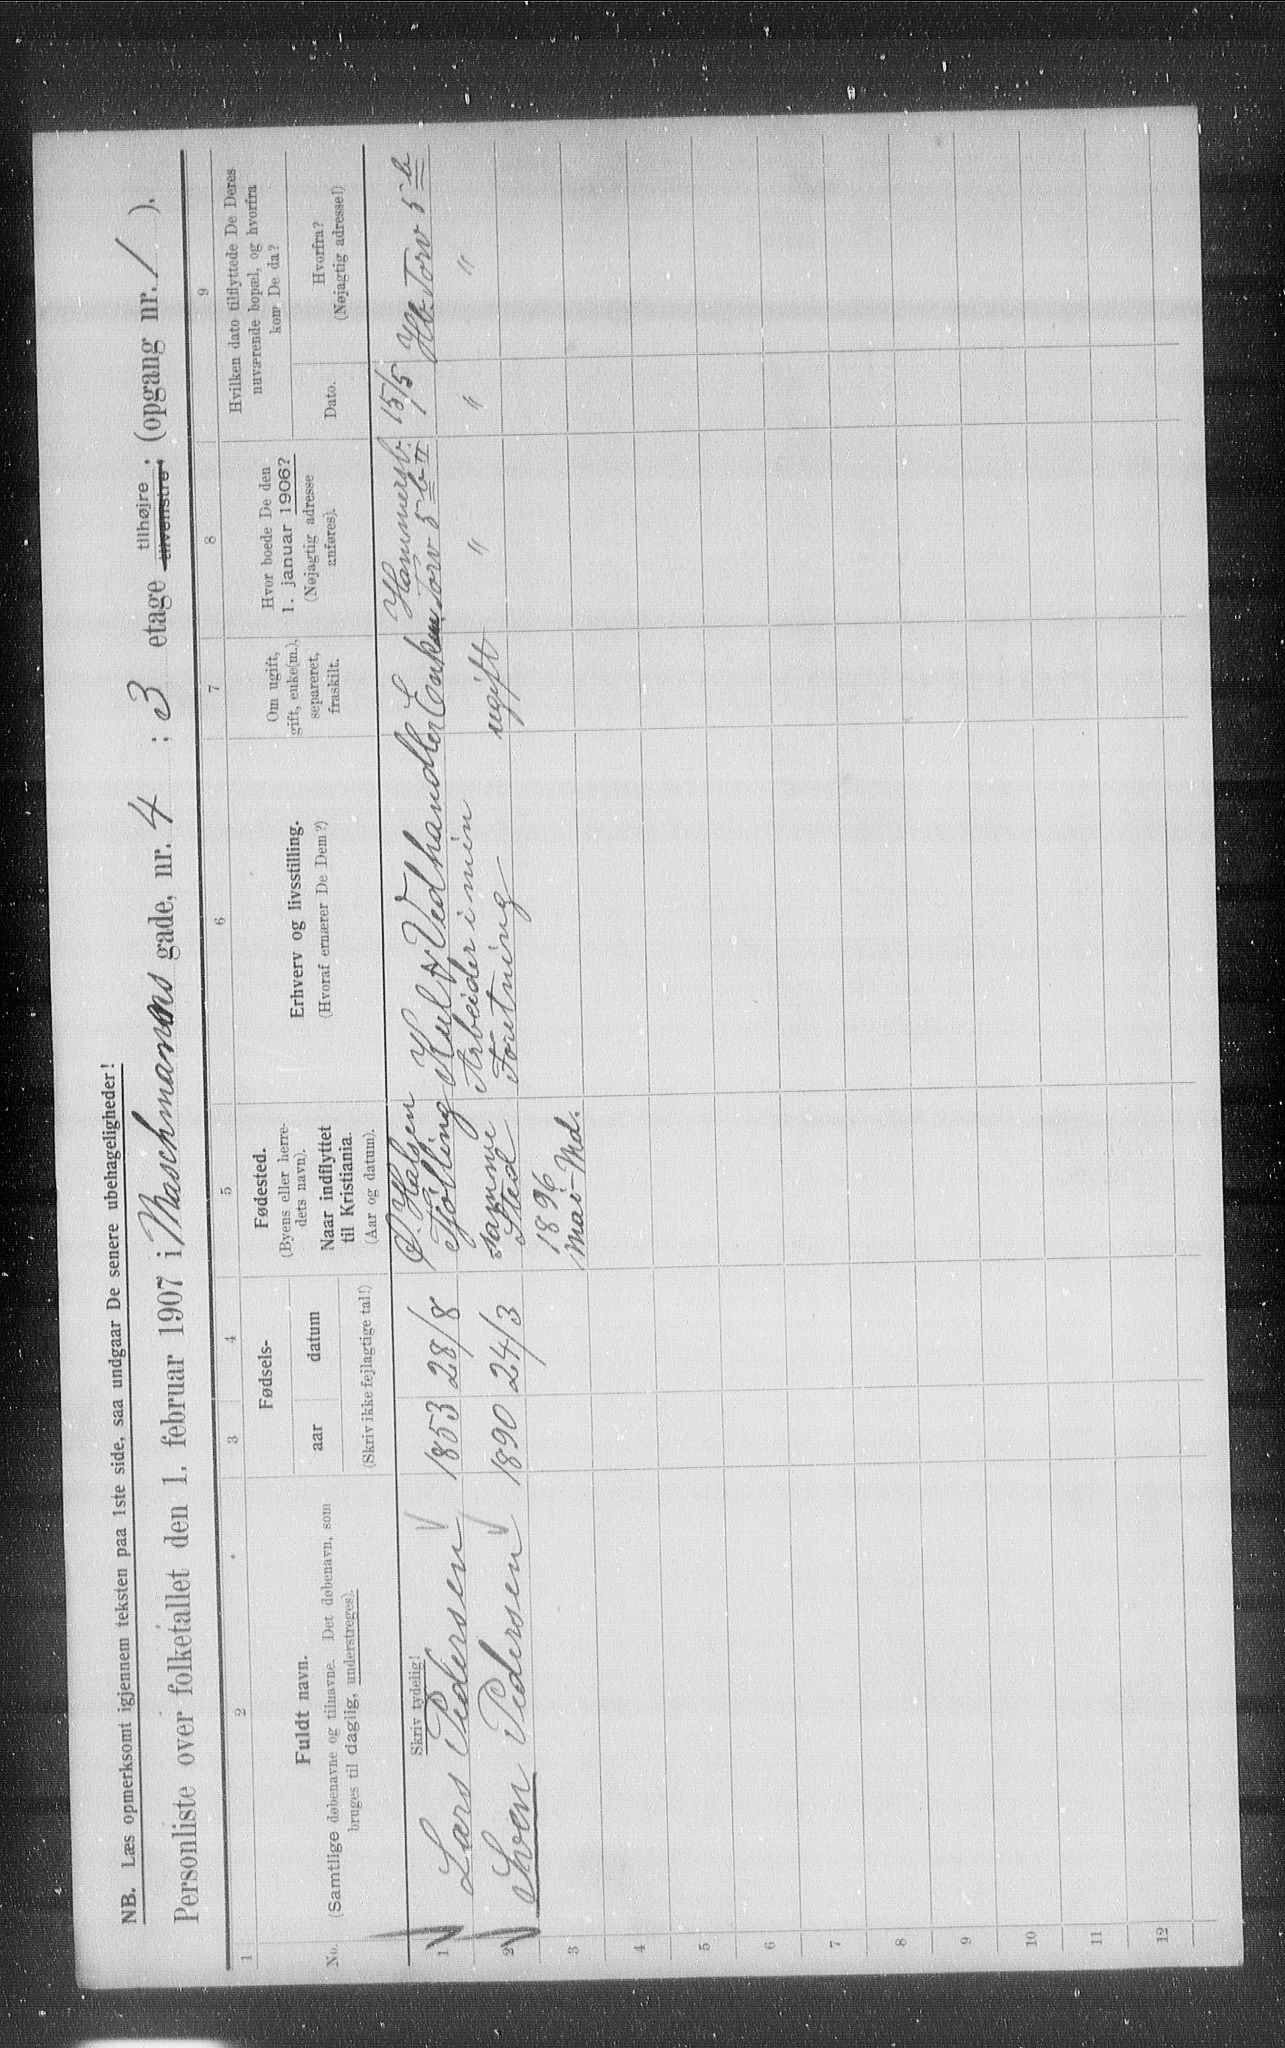 NB. Læs opmerksomt igjennem teksten paa 1ste side, saa undgaar De senere ubehageligheder!
Personliste over folketallet den 1. februar 1907 i Maschmanns gade, nr. 4 ; 3 etage tilhøjre ; tilvenstre ; (opgang nr. 1 ).
1 2 3 4 5 6 7 8 9
No.
Fuldt navn.
(Samtlige døbenavne og tilnavne. Det døbenavn, som
bruges til daglig, understreges).
Skriv tydelig!
Fødsels-
aar datum
(Skriv ikke fejlagtige tal!)
Fødested.
(Byens eller herre-
dets navn).
Naar indflyttet
til Kristiania.
(Aar og datum).
Erhverv og livsstilling.
(Hvoraf ernærer De Dem?)
Om ugift,
gift, enke(m.),
separeret,
fraskilt.
Hvor boede De den
1. januar 1906?
(Nøjagtig adresse
anføres).
Hvilken dato tilflyttede De Deres
nuværende bopæl, og hvorfra
kom De da?
Dato.
Hvorfra?
(Nøjagtig adresse!)
1 Lars Pedersen 1853 28/8
Halsen
Tjølling
Kul & Vedhandler
Enkem
Hammersb.
Torv 5 b II
15/5
Hb. Torv 5 b
2 Sven Pedersen 1890 24/3
samme
Sted
1896
Mai Md.
Arbeider i min
Foretning
ugift
" " "
3
4
5
6
7
8
9
10
11
12